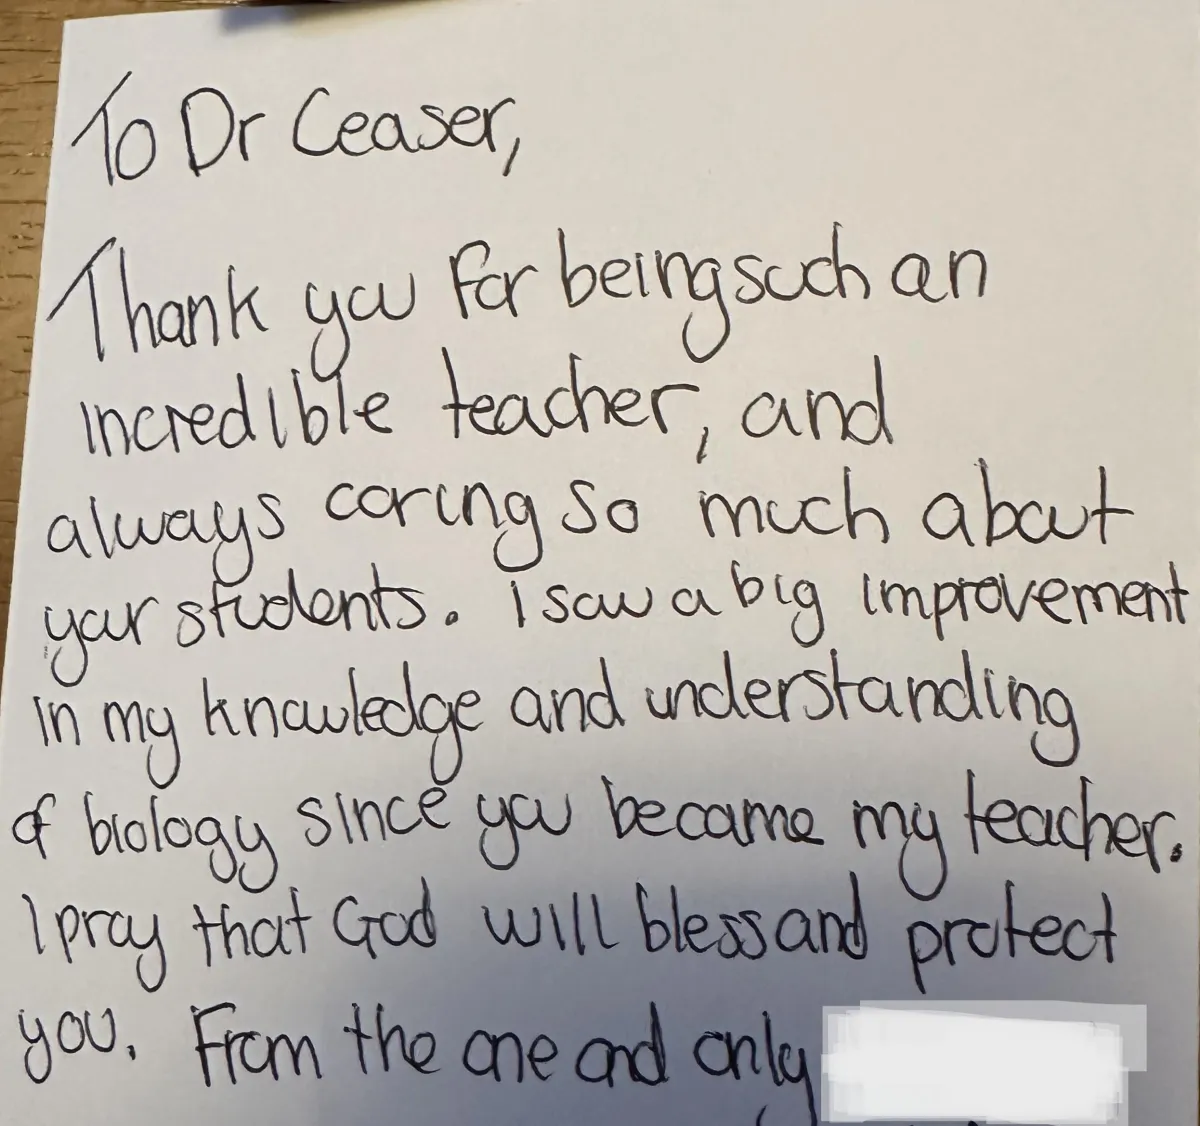 To Dr Ceaser,
Thank you for being such an
incredible teacher, and
always caring so much about
your students. I saw a big improvement
in my knowledge and understanding
of biology since you became my teacher.
I pray that God will bless and protect
you. From the one and only